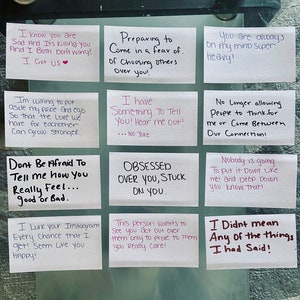 I know you are
Sad And Its killing you
And I Both Dont worry!
I Got Us ♥
Preparing to
Come in a fear of.
Of choosing others
over you!
You are always
on my mind super
Heavy!
Im willing to put
aside my pride and ego
So that the love we
have for Eachother
Can grow stronger.
I have
Something To Tell
You! Hear me Out!
... No Joke
No Longer allowing
People to think for
me or Come Between
Our Connection!
Dont Be Afraid To
Tell me how You
Really Feel...
good or Bad.
OBSESSED
OVER YOU, STUCK
ON YOU.
Nobody is going
To put it Down Like
me! And Deep Down
you know that!
I Lurk your Instagram
Every Chance that I
get! Seem Like you
happy!
This person wants to
see you Go! out over
them only to prove to them
you Really Care!
I Didnt mean
Any of the things
I had Said!